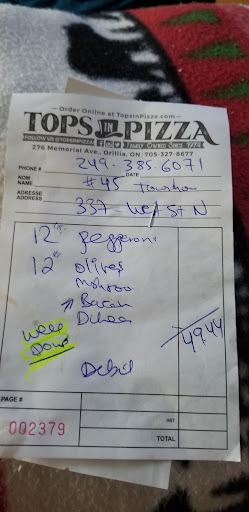 — Order Online at TopsInPizza.com —
TOPS IN PIZZA
FOLLOW US @TOPSINPIZZA FAMILY OWNED SINCE 1974
276 Memorial Ave., Orillia, ON 705-327-8677
PHONE # 249-385-6071
NOM NAME DATE
#45
ADRESSE ADDRESS
337 West St N
12" Pepperoni
12" olives
Mshroo
→ Bacon
Well Done
49.44
Debit
PAGE #
002379
HST
TOTAL